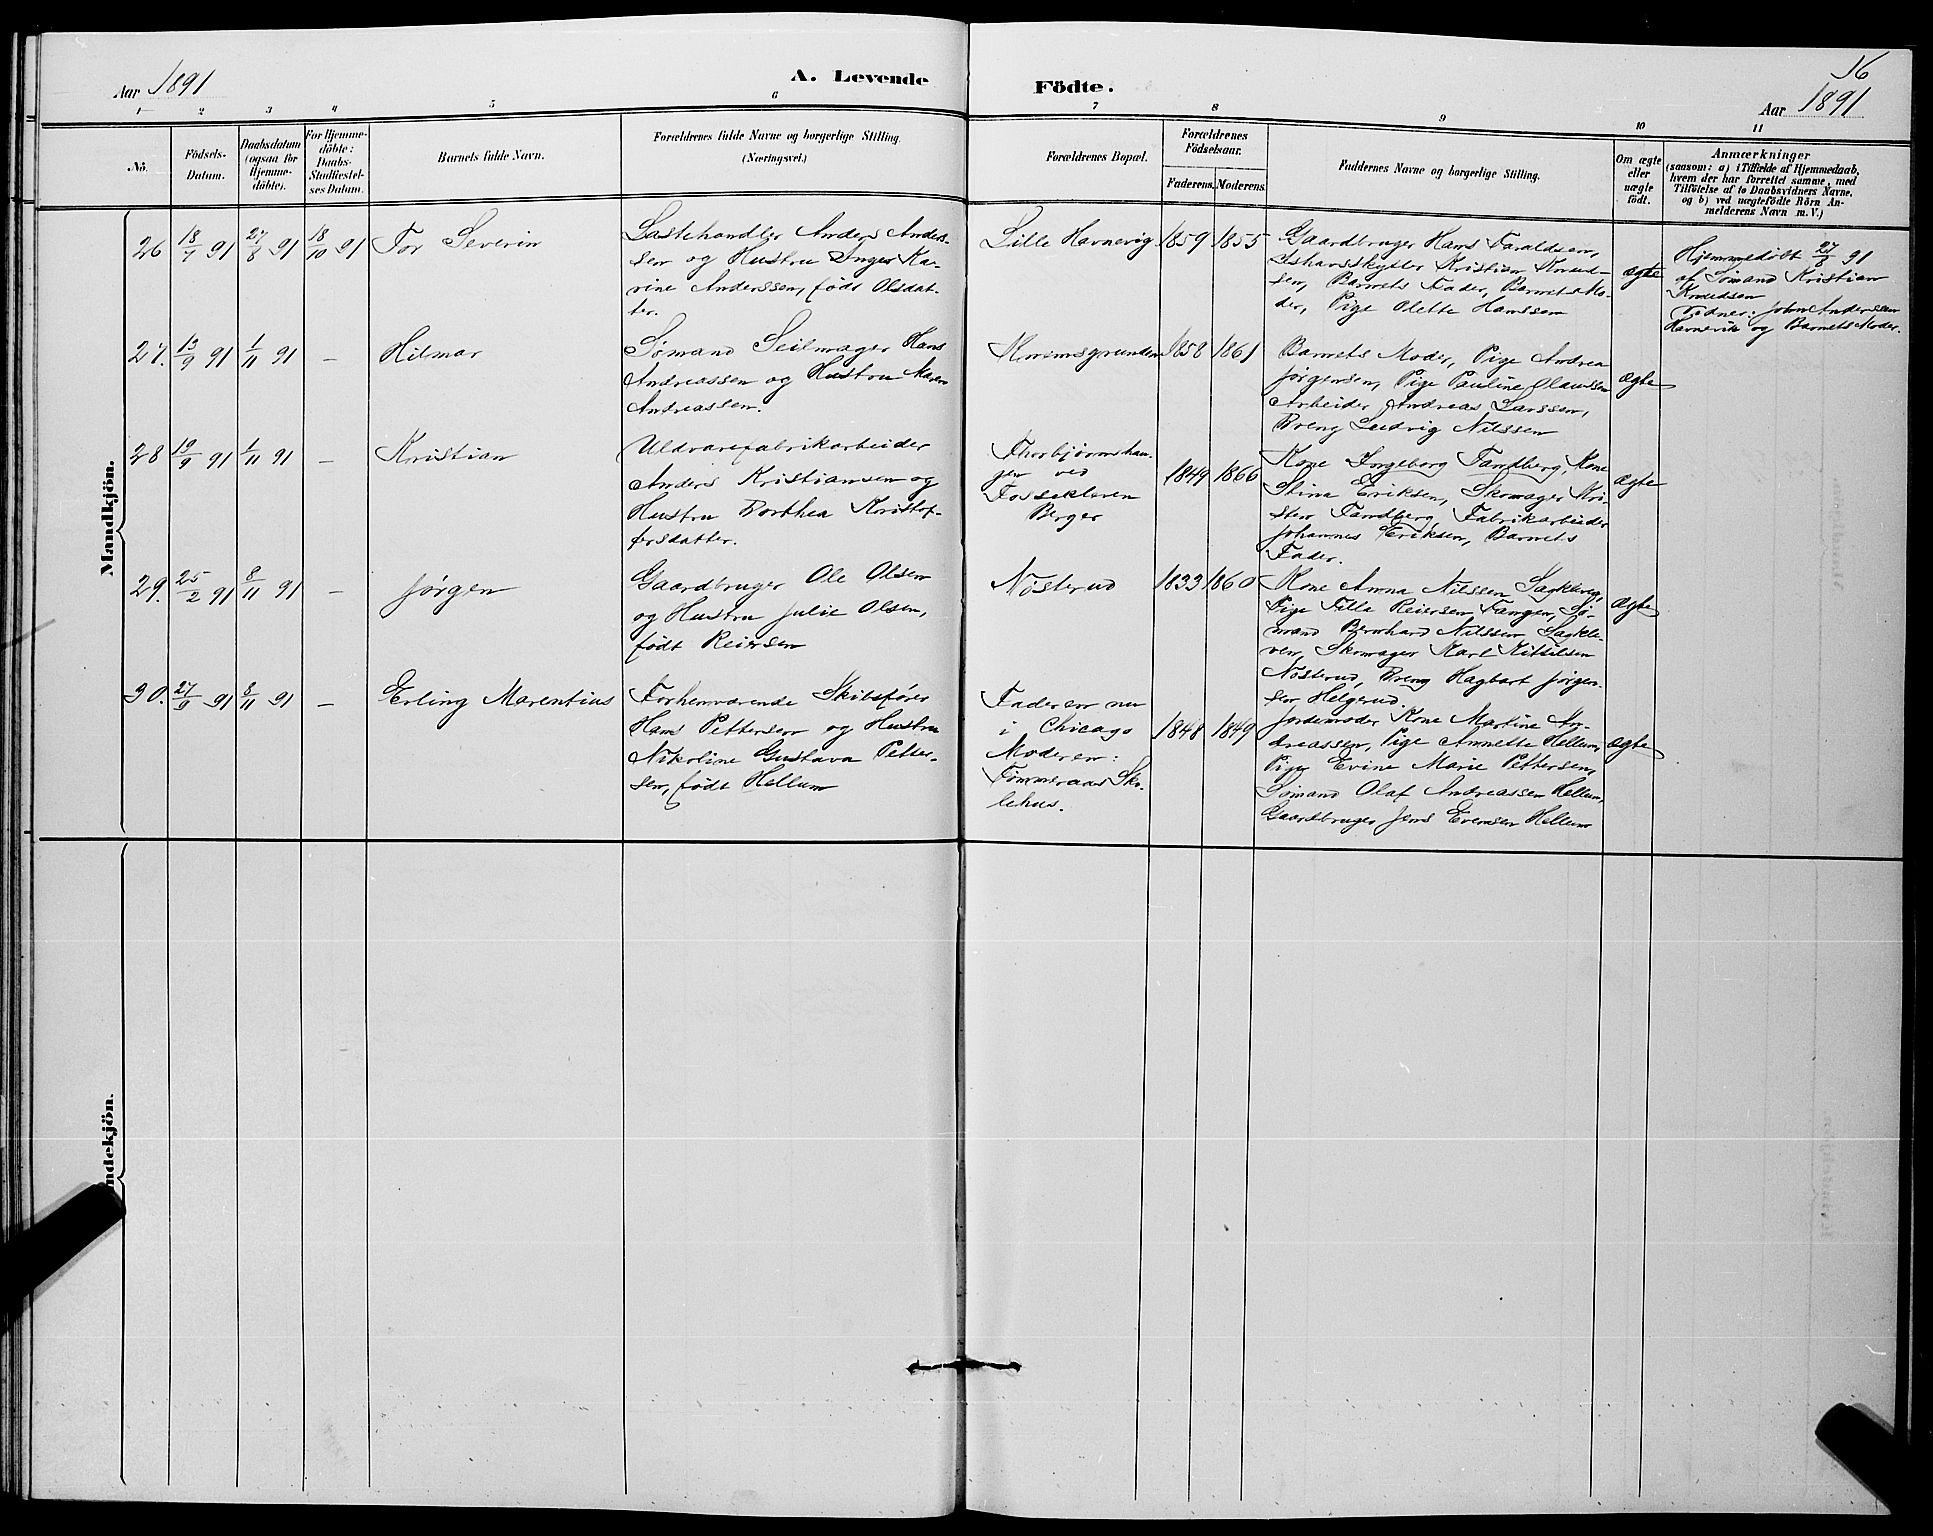 Aar 1891
A. Levende
Födte.
16
Aar 1891
1 2 3 4 5 6 7 8 9 10 11
No.
Födsels-
Datum.
Daabsdatum
(ogsaa for
Hjemme-
döbte).
For Hjemme-
döbte:
Daabs-
Stadfæstel-
ses Datum.
Barnets fulde Navn.
Forældrenes fulde Navne og borgerlige Stilling.
(Næringsvei.)
Forældrenes Bopæl.
Forældrenes
Födselsaar.
Faderens. Moderens.
Faddernes Navne og borgerlige Stilling.
Om ægte
eller
uægte
födt.
Anmærkninger
(saasom: a) i Tilfælde af Hjemmedaab,
hvem der har forrettet samme, med
Tilföielse af to Daabsvidners Navne,
og b) ved uægtefödte Börn An-
melderens Navn m. V.)
Mandkjön.
26 18/7 91 27/8 91 18/10 91
Tor Severin
Lastehandler Anders Anders-
sen og Hustru Inger Ka-
rine Anderssen, født Olsdat-
ter.
Lille Havnevig
1859 1855
Gaardbruger Hans Taraldsen,
Ishavsskytter Kristian Knud-
sen, Barnets Fader, Barnets Mo-
der, Pige Olette Hanssen
ægte
Hjemmedøbt 27/8 91
af Sømand Kristian
Knudsen
Vidner: John Anderssen
Havnevik og Barnets Moder.
27. 19/9 91 1/11 91 –
Hilmar
Sømand Seilmager Hans
Andreassen og Hustru Maren
Andreassen.
Knemsgrunden
1858 1861
Barnets Moder, Pige Andrea
Jørgensen, Pige Pauline Olaussen
Arbeider Andreas Larssen,
Dreng Ludvig Nilssen
ægte
28 19/9 91 1/11 91 –
Kristian
Uldvarefabrikarbeider
Anders Kristiansen og
Hustru Dorthea Kristof-
fersdatter.
Thorbjørnshau-
gen ved
Fossekleven
Berger
1849 1866
Kone Ingeborg Tandberg, Kone
Stina Eriksen, Skomager Kri-
sten Tandberg, Fabrikarbeider
Johannes Eriksen, Barnets
Fader.
ægte
29. 25/2 91 8/11 91 –
Jørgen
Gaardbruger Ole Olsen
og Hustru Julie Olsen,
født Reiersen
Nøsterud
1833 1860
Kone Anna Nilssen Sagkleven,
Pige Tilla Reiersen Tangen, Sø-
mand Bernhard Nilssen Sagkle-
ven, Skomager Karl Kitilsen
Nøsterud, Dreng Hagbart Jørgen-
sen Helgerud.
ægte
30. 27/9 91 8/11 91 –
Erling Marentius
Forhenværende Skibsfører
Hans Pettersen og Hustru
Nikoline Gustava Petter-
sen, født Hellum
Faderen nu
i Chicago
Moderen:
Tømmeraas Sko-
lehus.
1848 1849
Jordemoder Kone Martine An-
dreassen, Pige Annette Hellum,
Pige Evine Marie Pettersen,
Sømand Olaf Andreassen Hellum,
Gaardbruger Jens Evensen Hellum
ægte
ndekjön.